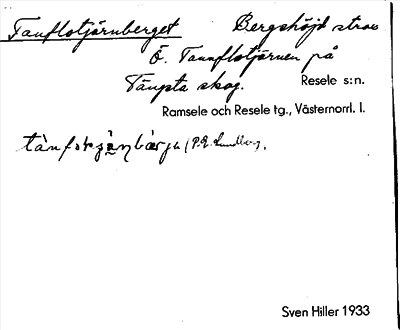 Tanflotjärnberget Bergshöjd strax
Ö. Tannflotjärnen på
Tängsta skog. Resele s:n.
Ramsele och Resele tg., Västernorrl. l.
(P.E. Lundberg).
Sven Hiller 1933